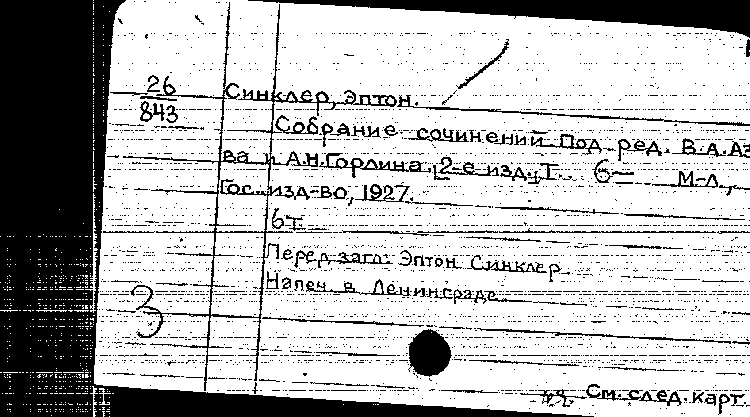 26
843
Синклер, Эптон.
Собрание сочинений Под ред. В.А.Аз
ва и А.Н.Горлина, 2-е изд., Т. 6— М-Л.,
Гос. изд-во, 1927.
6т.
Перед загл: Эптон Синклер
Напеч. в Ленинграде
3
См. след. карт.